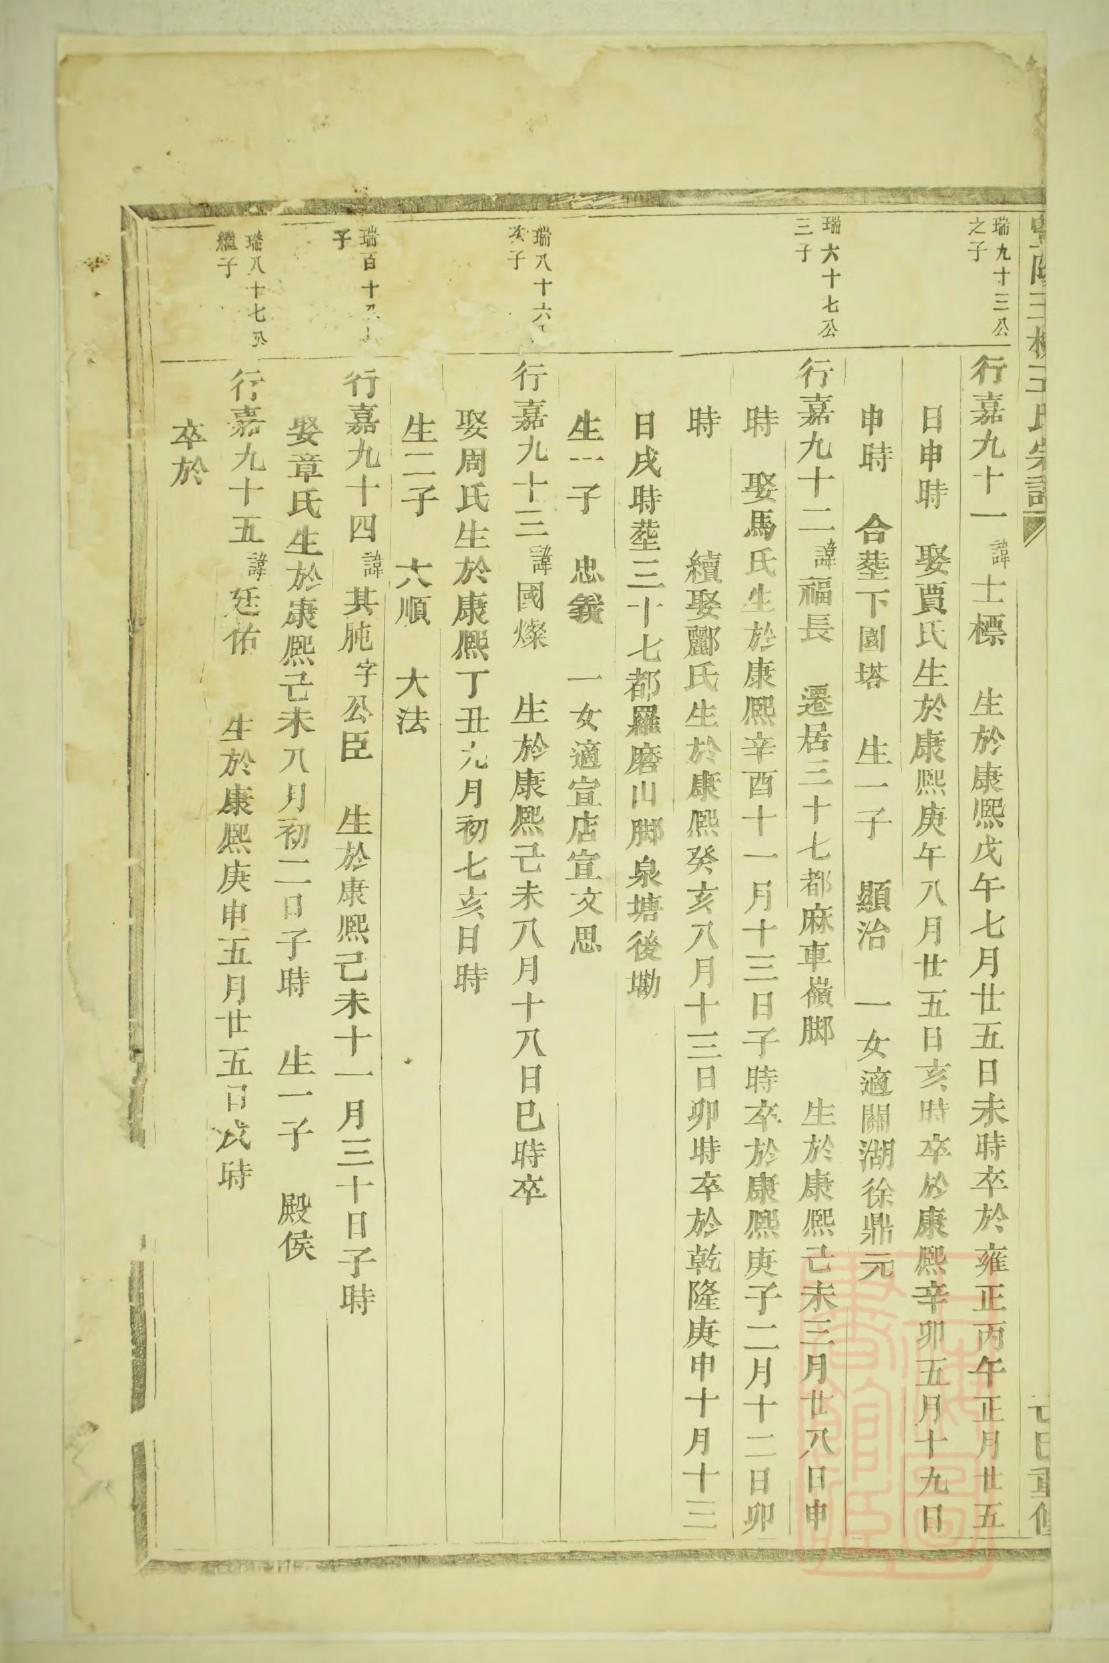 王氏宗譜
重修
瑞九十三公
之子
行嘉九十一 諱士標 生於康熙戊午七月廿五日未時卒於雍正丙午正月廿五
日申時 娶賈氏生於康熙庚午八月廿五日亥時卒於康熙辛卯五月十九日
申時 合塟下園塔 生一子 顯治 一女適關湖徐鼎元
瑞六十七公
三子
行嘉九十二 諱福長 遷居三十七都麻車嶺脚 生於康熙己未三月廿八日申
時 娶馬氏生於康熙辛酉十一月十三日子時卒於康熙庚子二月十二日卯
時 續娶酈氏生於康熙癸亥八月十三日卯時卒於乾隆庚申十月十三
日戌時塟三十七都羅磨山脚泉塘後塝
生一子 忠義 一女適宣店宣文思
瑞八十六
次子
行嘉九十三 諱國燦 生於康熙己未八月十八日巳時卒
娶周氏生於康熙丁丑九月初七亥日時
生二子 大順 大法
瑞百十
子
行嘉九十四 諱其肫 字公臣 生於康熙己未十一月三十日子時
娶章氏生於康熙己未八月初二日子時 生一子 殿侯
瑞八十七公
繼子
行嘉九十五 諱廷佑 生於康熙庚申五月廿五日戌時
卒於
上海圖書館藏